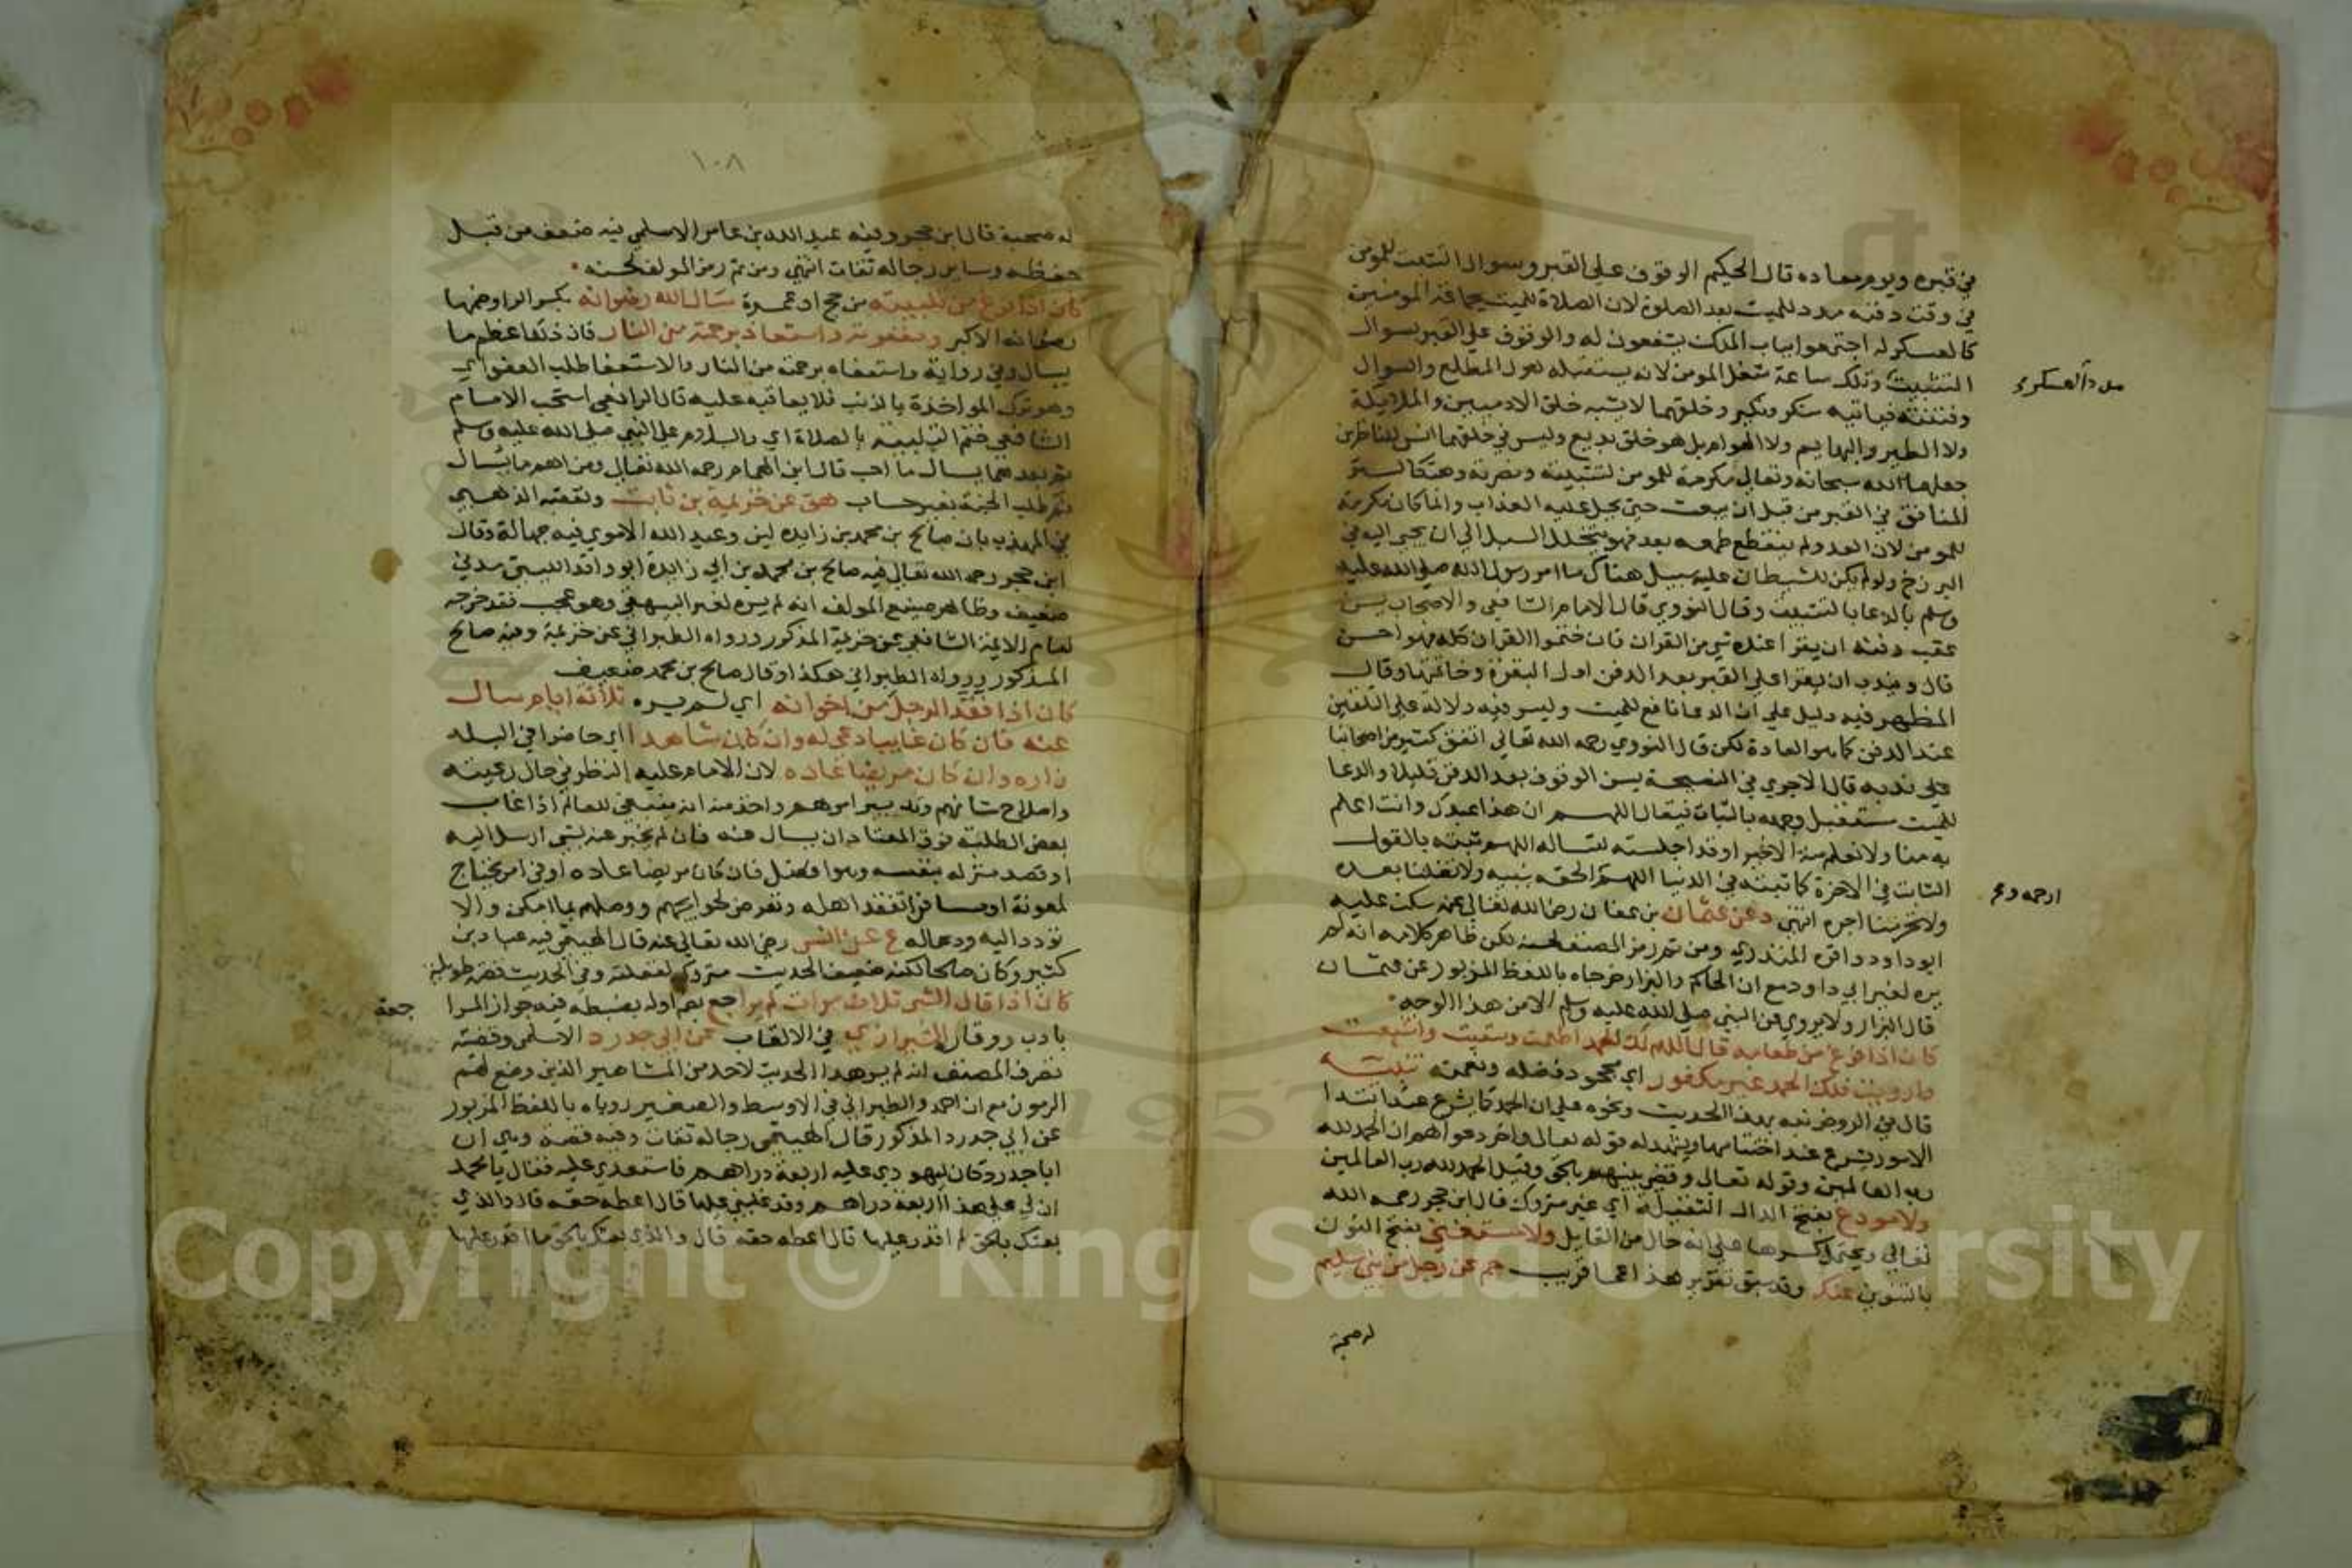 في قبره ويوم معاده قال الحكيم الوقوف على القبر وسوال التثبيت للمومن
في وقت دفنه مدد للميت بعد الصلوة لان الصلاة للميت بجماعة المومنين
كالعسكر له اجتمعوا بباب الملك يشفعون له والوقوف على القبر بسوال
التثبيت وتلك ساعة شغل المومن لانه يستقبله هول المطلع والسوال
مدد العسكر
وفتنته فياتيه منكر ونكير وخلقهما لا يشبه خلق الادميين والملايكة
ولا الطير والبهايم ولا الهوام بل هو خلق بديع وليس في خلقهما انس للناظرين
جعلهما الله سبحانه وتعالى مكرمة للمومن لتثبيته ونصرته وهتكا لستر
المنافق في القبر من قبل ان يبعث حتى يحل عليه العذاب وانما كان مكرمة
للمومن لان العدو لم ينقطع طمعه بعد فهو يتخلل السبل الى ان يجى اليه في
البرزخ ولو لم يكن للشيطان عليه سبيل هناك ما امر رسول الله صلى الله عليه
وسلم بالدعا بالتثبيت وقال النووي قال الامام الشافعي والاصحاب يسن
عقب دفنه ان يقرا عنده شي من القران فان ختموا القران كله فهو احسن
قال ويندب ان يقرا على القبر بعد الدفن اول البقرة وخاتمتها وقال
المظهر فيه دليل على ان الدعا نافع للميت وليس فيه دلالة على التلقين
عند الدفن كما هو العادة لكن قال النووي رحمه الله تعالى اتفق كثير من اصحابنا
على ندبه قال الاجري في النصيحة يسن الوقوف بعد الدفن قليلا والدعا
للميت مستقبل وجهه بالثبات فيقال اللهم ان هذا عبدك وانت اعلم
به منا ولا نعلم منه الا خيرا وقد اجلسته لتساله اللهم ثبته بالقول
الثابت في الاخرة كما ثبته في الدنيا اللهم الحقه بنبيه ولا تضلنا بعده
ارحمه و
ولا تحرمنا اجره انتهى د عن عثمان بن عفان رضي الله تعالى عنه سكت عليه
ابو داود واقره المنذري ومن ثم رمز المصنف لحسنه لكن ظاهر كلامه انه لم
يره لغير ابي داود مع ان الحاكم والبزار خرجاه باللفظ المزبور عن عثمان
قال البزار ولا يروي عن النبي صلى الله عليه وسلم الا من هذا الوجه
كان اذا فرغ من طعامه قال اللهم لك الحمد اطعمت وسقيت واشبعت
وارويت فلك الحمد غير مكفور اي مجحود فضله ونعمته
قال في الروض نبه بهذا الحديث ونحوه على ان الحمد كما يشرع عند ابتدا
الامور يشرع عند اختتامها ويشهد له قوله تعالى واخر دعواهم ان الحمد لله
رب العالمين وقوله تعالى وقضي بينهم بالحق وقيل الحمد لله رب العالمين
ولا مودع بفتح الدال الثقيلة اي غير متروك قال ابن حجر رحمه الله
تعالى ويحتمل كسرها على انه حال من القايل ولا مستغنى بفتح النون
بالتنوين عنك وقد سبق تقرير هذا عما قريب حم عن رجل من بني سليم
له صحبة
١٠٨
له صحبة قال ابن حجر وفيه عبد الله بن عامر الاسلمي فيه ضعف من قبل
حفظه وساير رجاله ثقات انتهى ومن ثم رمز المولف لحسنه
كان اذا فرغ من تلبيته من حج او عمرة سال الله رضوانه بكسر الرا وضمها
رضاه الاكبر ومغفرته واستعاذ برحمته من النار فان ذلك اعظم ما
يسال وفي رواية واستعفاه برحمته من النار والاستعفا طلب العفو اي
وهو ترك المواخذة بالذنب فلا يعاقبه عليه قال الرافعي استحب الامام
الشافعي ختم التلبية بالصلاة اي والسلام على النبي صلى الله عليه وسلم
ثم بعدهما يسال ما احب قال ابن الهمام رحمه الله تعالى ومن اهم ما يسال
ثم طلب الجنة بغير حساب هق عن خزيمة بن ثابت وتعقبه الذهبي
في المهذب بان صالح بن محمد بن زايدة لين وعبد الله الاموي فيه جهالة وقال
ابن حجر رحمه الله تعالى فيه صالح بن محمد بن ابي زايدة ابو واقد الليثي مدني
ضعيف وظاهر صنيع المولف انه لم يره لغير البيهقي وهو عجب فقد خرجه
امام الايمة الشافعي عن خزيمة المذكور ورواه الطبراني عن خزيمة وفيه صالح
المذكور ورواه الطبراني هكذا وقال صالح بن محمد ضعيف
كان اذا فقد الرجل من اخوانه اي لم يره ثلاثة ايام سال
عنه فان كان غايبا دعى له وان كان شاهدا اي حاضرا في البلد
زاره وان كان مريضا عاده لان الامام عليه النظر في حال رعيته
واصلاح شانهم وتدبير امرهم واخذ منه انه ينبغي للعالم اذا غاب
بعض الطلبة فوق المعتاد ان يسال عنه فان لم يخبر عنه بشي ارسل اليه
او قصد منزله بنفسه وهو افضل فان كان مريضا عاده او في امر يحتاج
لمعونة او مسافرا تفقد اهله وتعرض لحوايجهم ووصلهم بما امكن والا
تودد اليه ودعا له ع عن انس رضي الله تعالى عنه قال الهيثمي فيه عباد بن
كثير وكان صالحا لكنه ضعيف الحديث متروك لغفلته وفي الحديث قصة طويلة
كان اذا قال الشي ثلاث مرات لم يراجع بضم اوله بضبطه فيه جواز المرا
جعة
بادب ووقار الشيرازي في الالقاب عن ابي حدرد الاسلمي وقضية
تصرف المصنف انه لم ير هذا الحديث لاحد من المشاهير الذين وضع لهم
الرموز مع ان احمد والطبراني في الاوسط والصغير روياه باللفظ المزبور
عن ابي حدرد المذكور قال الهيثمي رجاله ثقات وفيه قصة وهي ان
ابا حدرد كان ليهودي عليه اربعة دراهم فاستعدي عليه فقال يا محمد
ان لي على هذا اربعة دراهم وقد غلبني عليها قال اعطه حقه قال والذي
بعثك بالحق لم اقدر عليها قال اعطه حقه قال والذي بعثك بالحق ما اقدر عليها
Copyright © King Saud University
1957